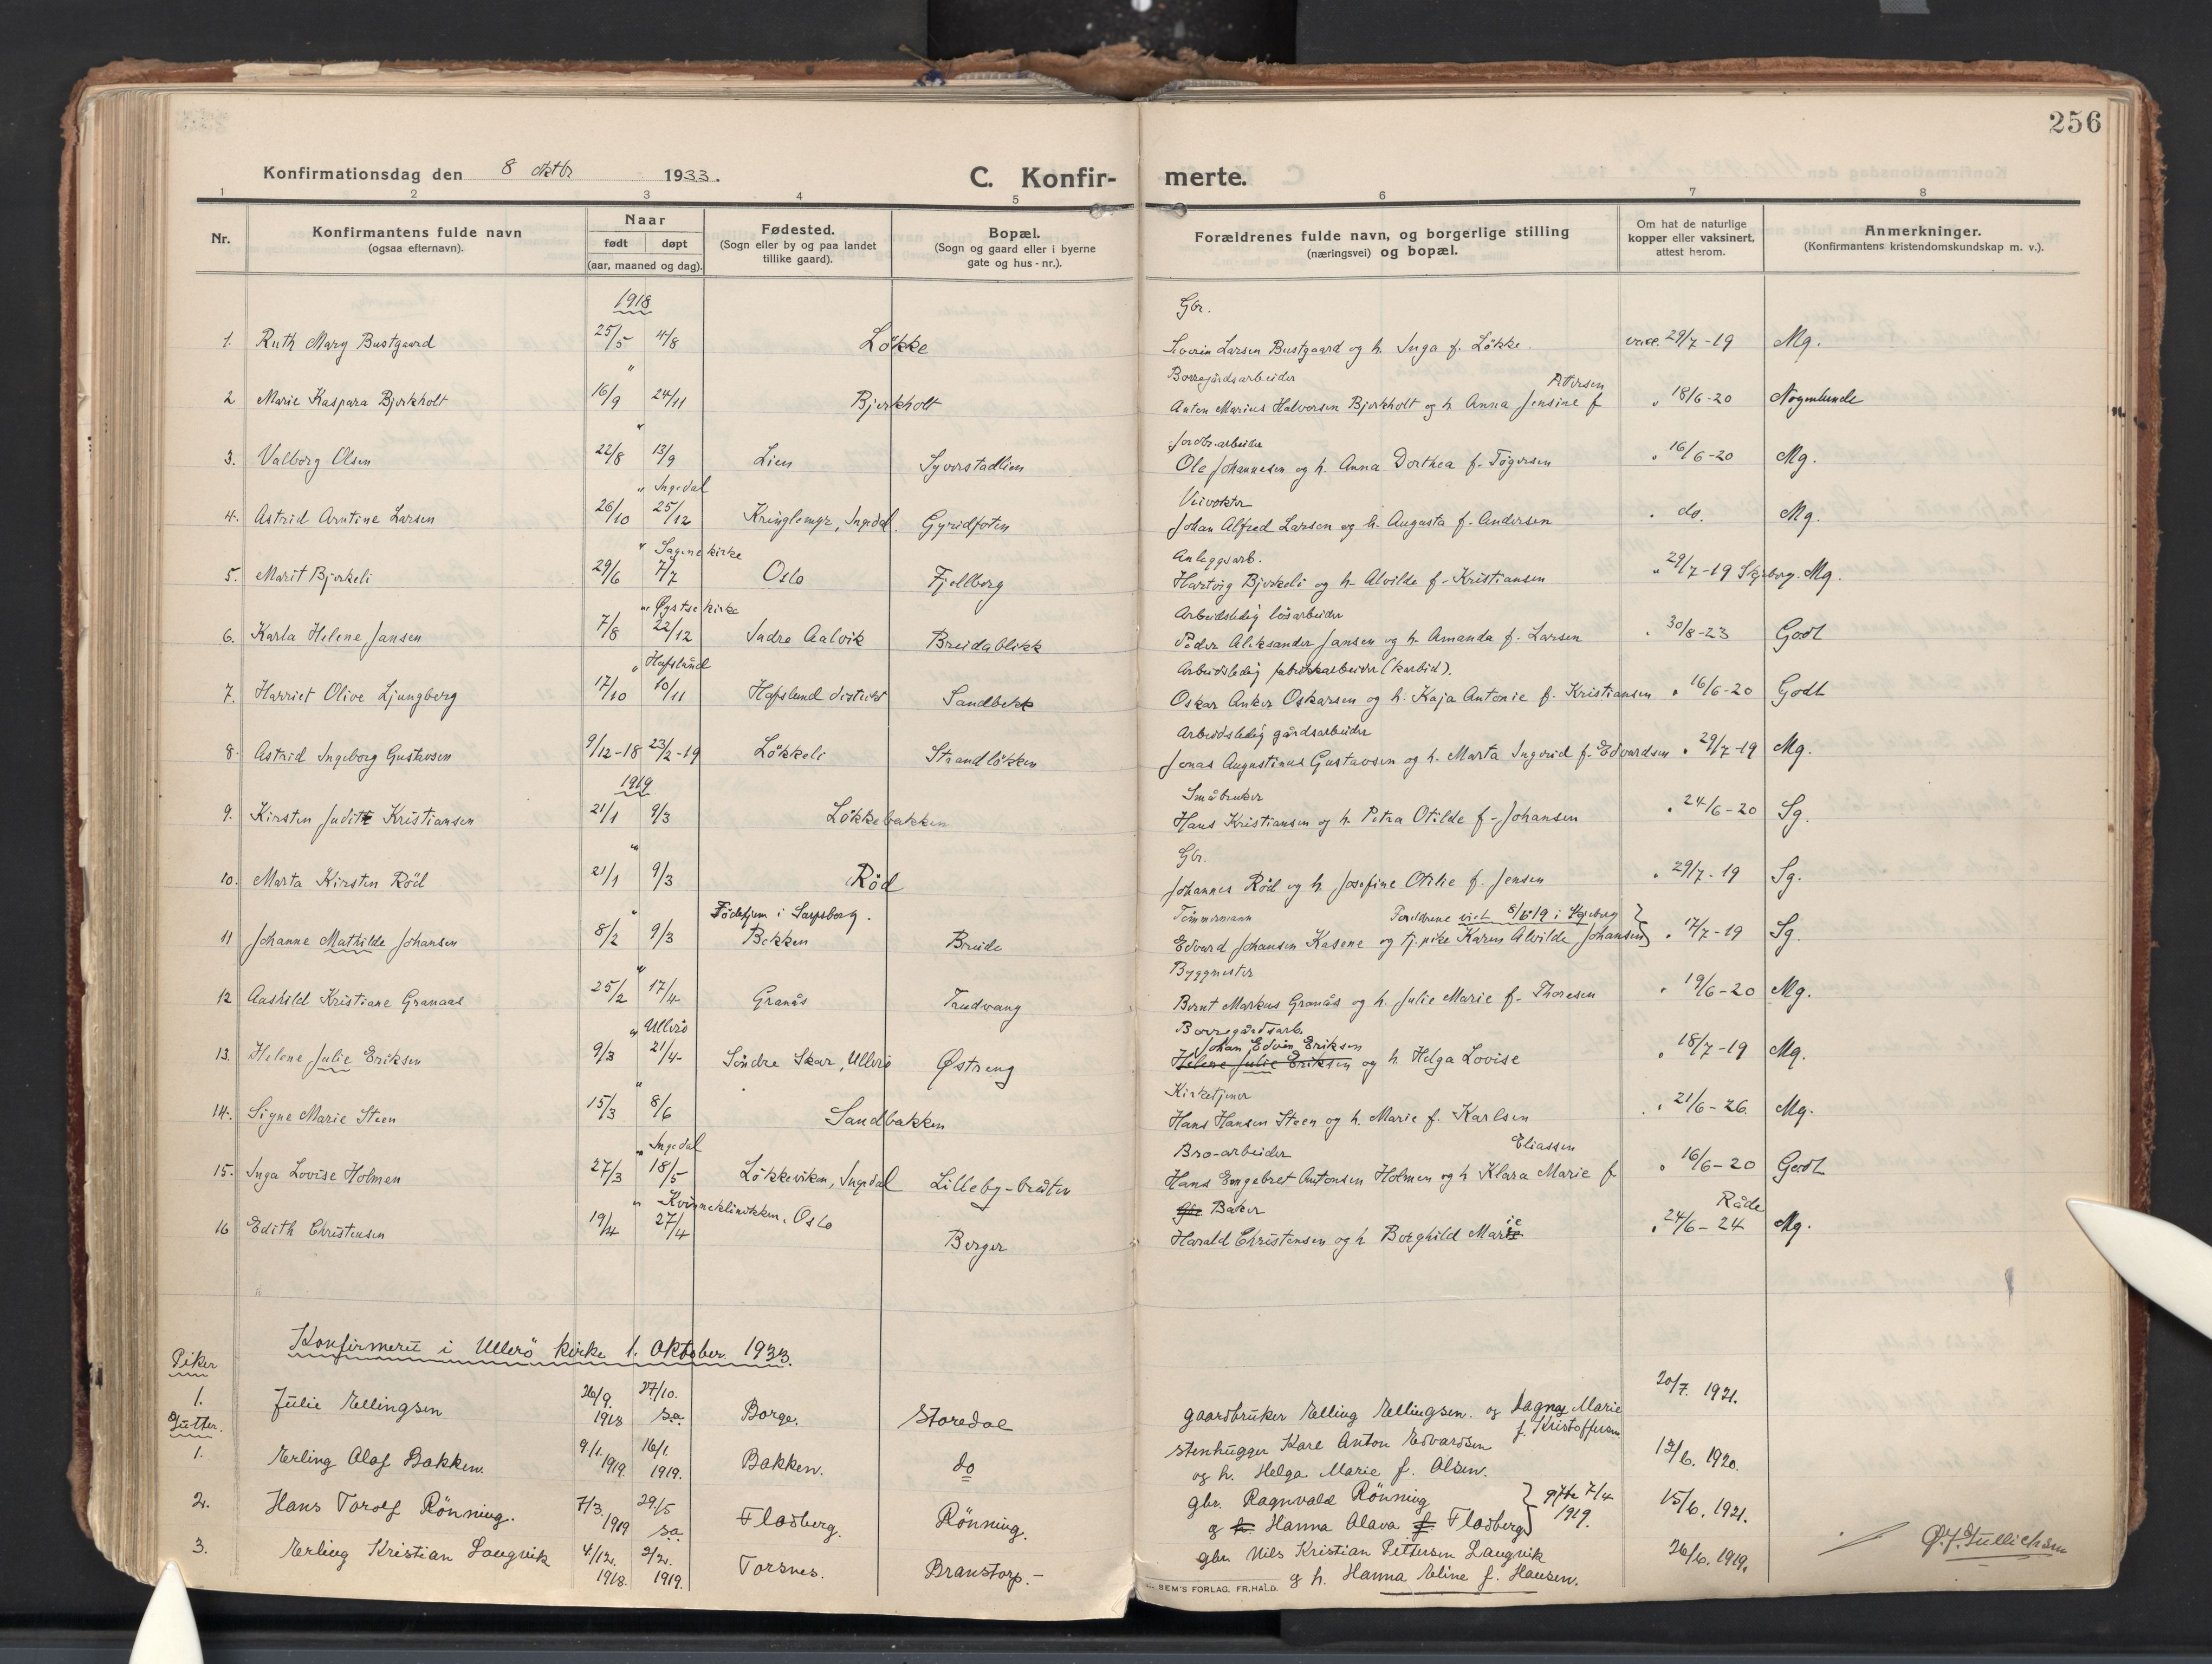 256
Konfirmationsdag den 8 oktbr 1933.
C. Konfir- merte.
1 2 3 4 5 6 7 8
Nr.
Konfirmantens fulde navn
(ogsaa efternavn).
Naar
født døpt
(aar, maaned og dag).
Fødested.
(Sogn eller by og paa landet
tillike gaard).
Bopæl.
(Sogn og gaard eller i byerne
gate og hus - nr.).
Forældrenes fulde navn, og borgerlige stilling
(næringsvei) og bopæl.
Om hat de naturlige
kopper eller vaksinert,
attest herom.
Anmerkninger.
(Konfirmantens kristendomskundskap m. v.).
1918 Gbr.
1. Ruth Mary Bustgaard 25/5 4/8 Løkke Severin Larsen Bustgaard og h. Inga f. Løkke. vacc. 29/7-19 Mg.
" Borregårdsarbeider Pettersen
2 Marie Kaspara Bjerkholt 16/9 24/11 Bjerkholt Anton Marius Halvorsen Bjerkholt og h Anna Jensine f " 18/6-20 Nogenlunde
" Jordbr.arbeider
3. Valborg Olsen 22/8 13/9 Lien Syverstadlien Ole Johannesen og h. Anna Dorthea f. Tøgersen " 16/6-20 Mg.
" Ingedal Veivokter
4. Astrid Arntine Larsen 26/10 25/12 Kringlemyr, Ingedal. Gyridfoten Johan Alfred Larsen og h. Augusta f. Andersen " do. Mg.
" Sagene kirke Anleggsarb.
5. Marit Bjerkeli 29/6 7/7 Oslo Fjellberg Hartvig Bjerkeli og h. Alvilde f. Kristiansen " 29/7-19 Skjeberg. Mg.
" Øystese kirke Arbeidsledig løsarbeider
6. Karla Helene Jansen 7/8 22/12 Indre Aalvik Breidablikk Peder Aleksander Jansen og h. Amanda f. Larsen " 30/8-23 Godt
" Hafslund Arbeidsledig fabrikkarbeider (karbid).
7. Harriet Olive Ljungberg 17/10 10/11 Hafslund distrikt Sandbekk Oskar Anker Oskarsen og h. Kaja Antonie f. Kristiansen " 16/6-20 Godt
Arbeidsledig gårdsarbeider
8. Astrid Ingeborg Gustavsen 9/12-18 23/2-19 Løkkeli Strandløkken Jonas Augustinus Gustavsen og h. Marta Ingerid f. Edvardsen " 29/7-19 Mg.
1919 Småbruker
9. Kirsten Judith Kristiansen 21/1 9/3 Løkkebakken Hans Kristiansen og h. Petra Otilde f. Johansen " 24/6-20 Sg.
" Gbr.
10. Marta Kirsten Rød 21/1 9/3 Rød Johannes Rød og h Josefine Otilie f. Jensen " 29/7-19 Sg.
" Fødehjem i Sarpsborg. Tømmermann Foreldrene viet 8/6 19 i Skjeberg
11 Johanne Mathilde Johansen 8/2 9/3 Bekken Breide Edvard Johansen Kasene og tj.pike Karen Alvilde Johansen " 17/7-19 Sg.
" Byggmester
12 Aashild Kristiane Granaas 25/2 17/4 Granås Trudvang Bernt Markus Granås og h. Julie Marie f. Thoresen " 19/6-20 Mg.
" Ullerø Borregårdsarb.
Johan Edvin Eriksen
13. Helene Julie Eriksen 9/3 21/4 Søndre Skar, Ullerø Østreng Helene Julie Eriksen og h. Helga Lovise " 18/7-19 Mg.
" Kirketjener
14. Signe Marie Steen 15/3 8/6 Sandbakken Hans Hansen Steen og h. Marie f. Karlsen " 21/6-26. Mg.
" Ingedal Bro-arbeider Eliassen
15. Inga Lovise Holmen 27/3 18/5 Løkkeviken, Ingedal Lilleby-bråten Hans Engebret Antonsen Holmen og h Klara Marie f " 16/6-20 Godt
" Kvinneklinikken, Oslo Gbr. Baker Råde
16 Edith Christensen 19/4 27/4 Berger Harald Christensen og h Borghild Marie " 24/6-24 Mg.
Konfirmert i Ullerø kirke 1. Oktober 1933.
Piker
1. Julie Ellingsen 26/9. 1918 27/10. s.a. Borge. Storedal gaardbruker Elling Ellingsen og Dagny Marie f. Kristoffersen 20/7. 1921.
Gutter.
1. Erling Olaf Bakken. 9/1. 1919. 16/1. 1919. Bakken. do stenhugger Karl Anton Edvardsen
og h. Helga Marie f. Olsen. 12/6. 1920.
2. Hans Torolf Rönning. 7/3. 1919 29/5 s.a. Flodberg. Rönning. gbr. Ragnvald Rönning
og h. Hanna Olava f Flodberg gifte 7/4 1919. 15/6. 1921.
3. Erling Kristian Langvik 4/12. 1918. 2/2. 1919. Torsnes. Branstorp.- gbr. Nils Kristian Pettersen Langvik
og h. Hanna Eline f. Hansen. 26/6. 1919.
SEM'S FORLAG. FR.HALD.